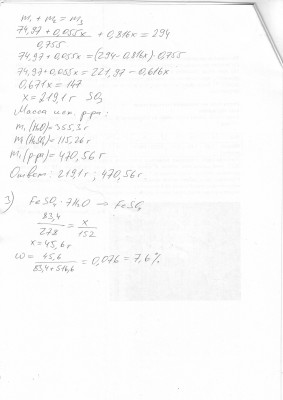 m₁ + m₂ = m₃
(74,97 + 0,055x)/0,755 + 0,816x = 294
74,97 + 0,055x = (294 - 0,816x)·0,755
74,97 + 0,055x = 221,97 - 0,616x
0,671x = 147
x = 219,1 г SO₃
Масса исх. р-ра:
m₁(H₂O) = 355,3 г
m(H₂SO₄) = 115,26 г
m₁(р-ра) = 470,56 г
Ответ: 219,1 г; 470,56 г
3) FeSO₄·7H₂O → FeSO₄
83,4/278 = x/152
x = 45,6 г
ω = 45,6/(83,4+516,6) = 0,076 = 7,6%